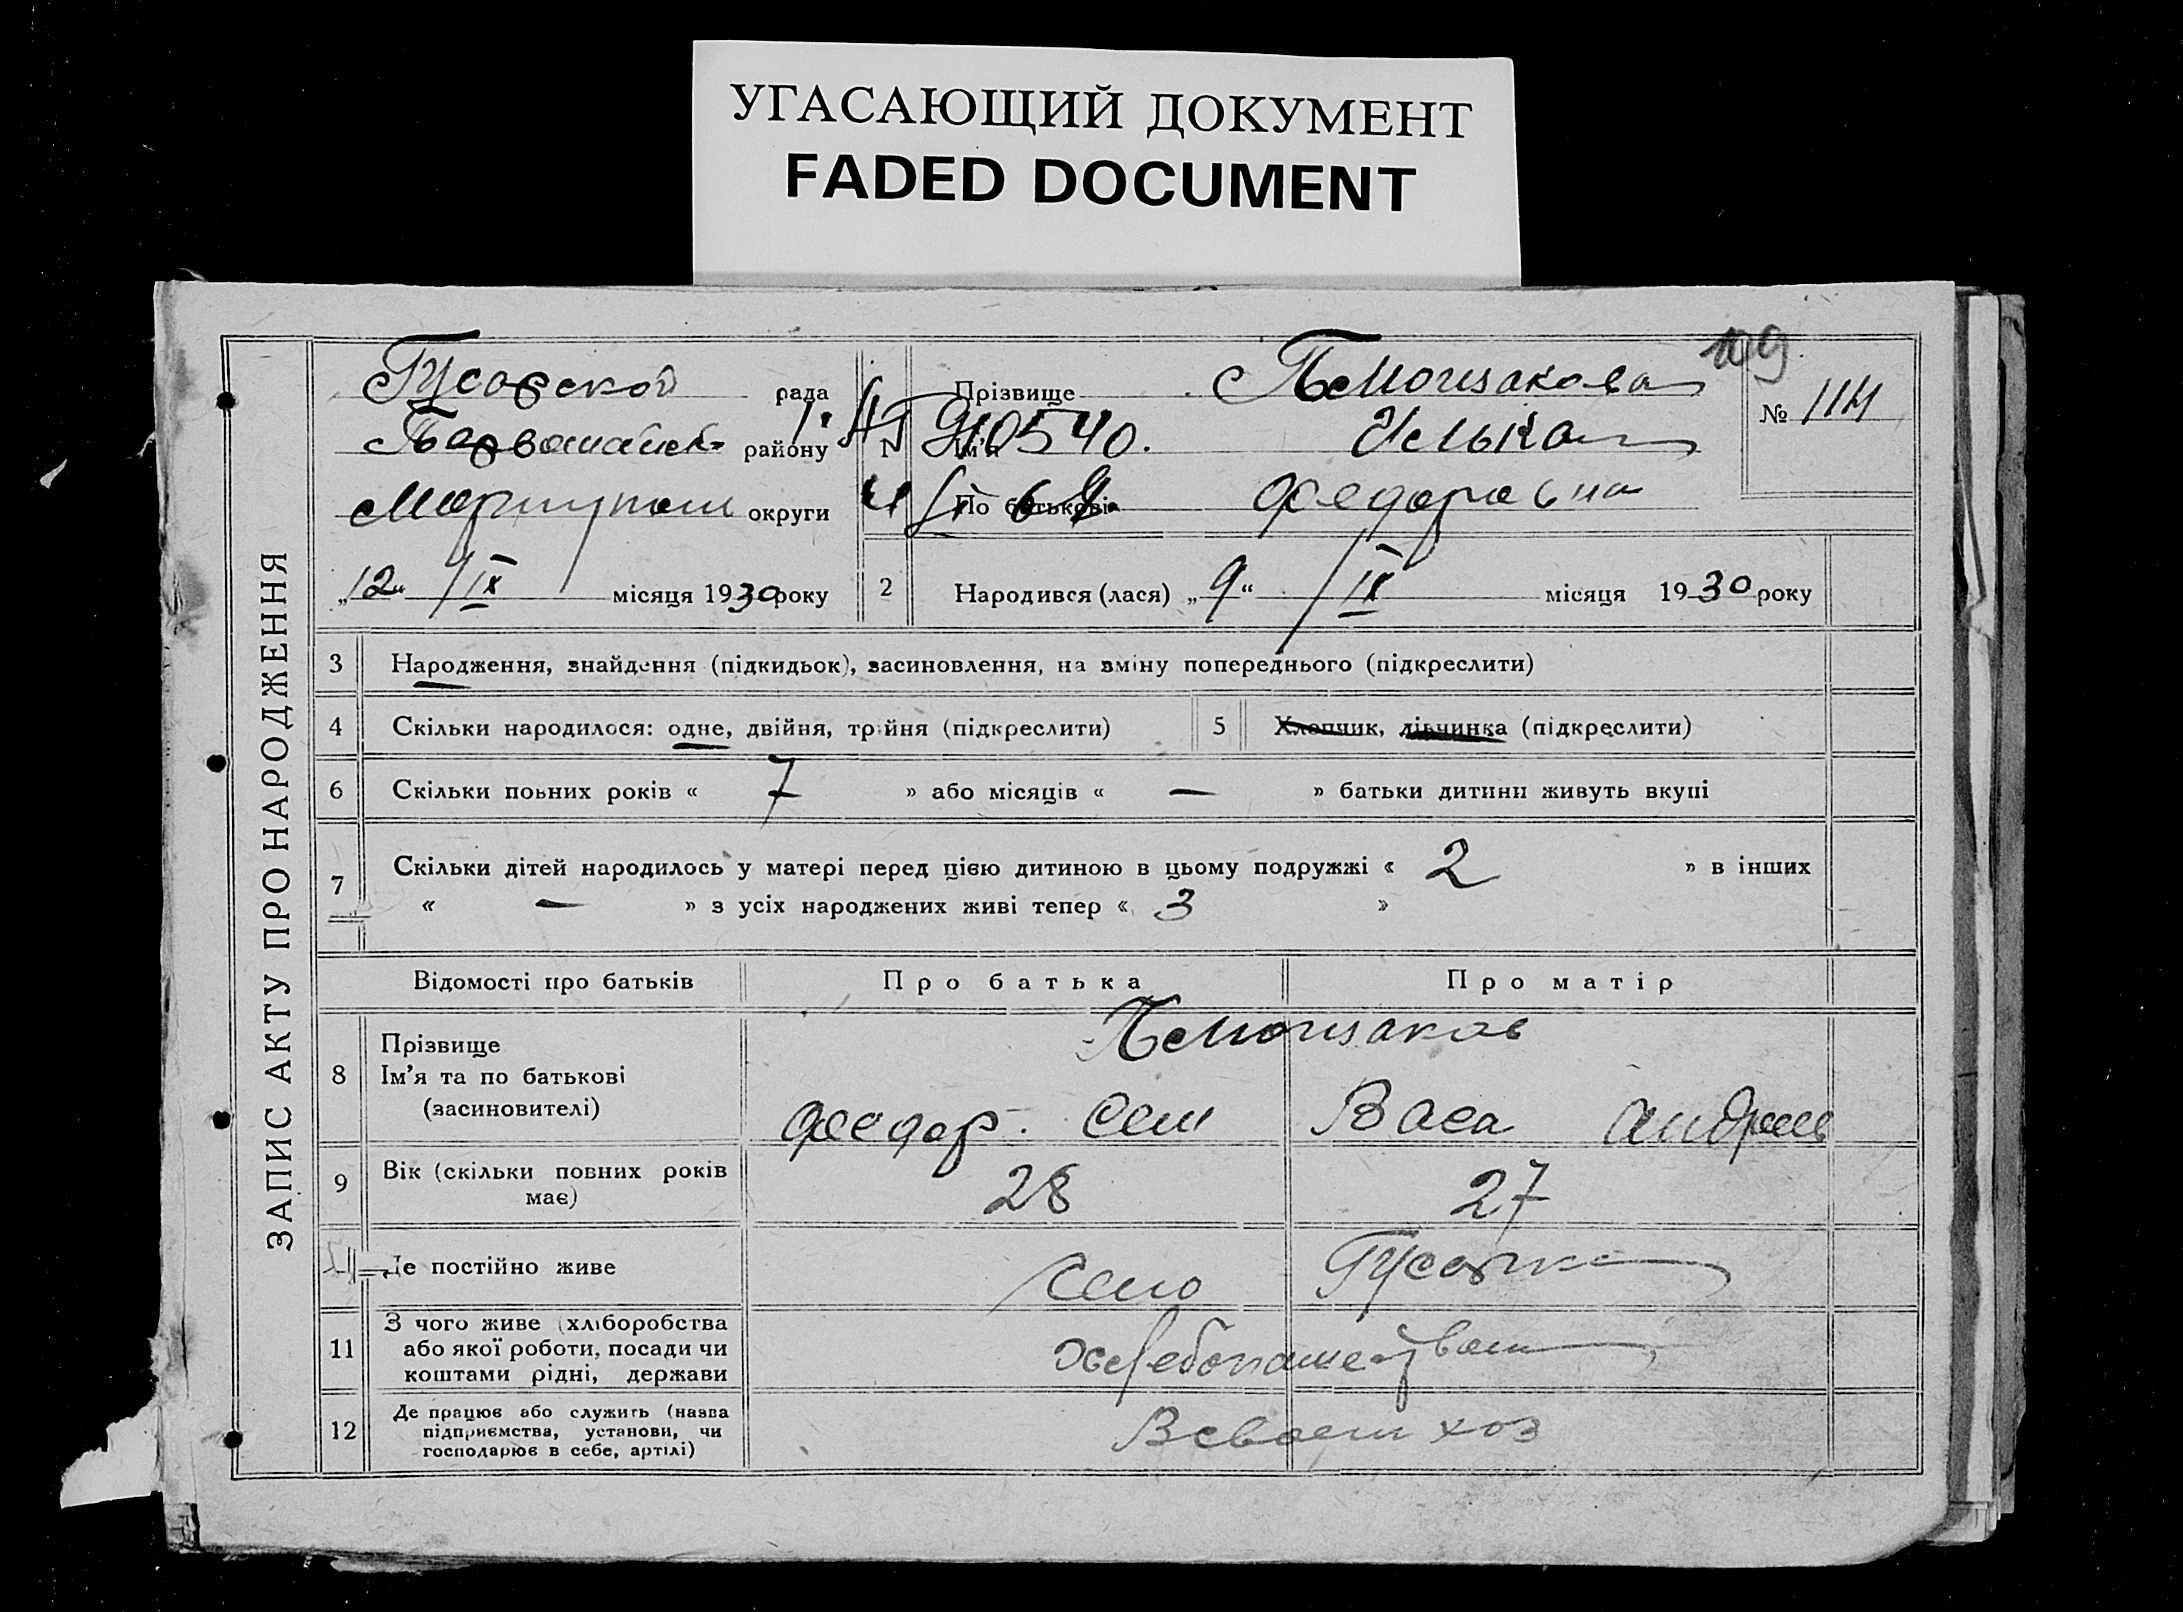 УГАСАЮЩИЙ ДОКУМЕНТ
FADED DOCUMENT
ЗАПИС АКТУ ПРО НАРОДЖЕННЯ
Гусарской рада
району
округи
„12“ IX місяця 1930 року
109
№ 114
1 Прізвище
Ім'я
910540.
По батькові Федоровна
2 Народився (лася) „9“ IX місяця 1930 року
3 Народження, знайдення (підкидьок), засиновлення, на зміну попереднього (підкреслити)
4 Скільки народилося: одне, двійня, трійня (підкреслити)
5 Хлопчик, дівчинка (підкреслити)
6 Скільки повних років « 7 » або місяців « — » батьки дитини живуть вкупі
7 Скільки дітей народилось у матері перед цією дитиною в цьому подружжі « 2 » в інших
« — » з усіх народжених живі тепер « 3 »
Відомості про батьків Про батька Про матір
8 Прізвище
Ім'я та по батькові
(засиновителі)
Федор. Сем Васа Андреев
9 Вік (скільки повних років
має)
28 27
Де постійно живе
Село Гусарка
11 З чого живе (хліборобства
або якої роботи, посади чи
коштами рідні, держави
Хлебопашеством
12 Де працює або служить (назва
підприємства, установи, чи
господарює в себе, артілі)
В своем хоз